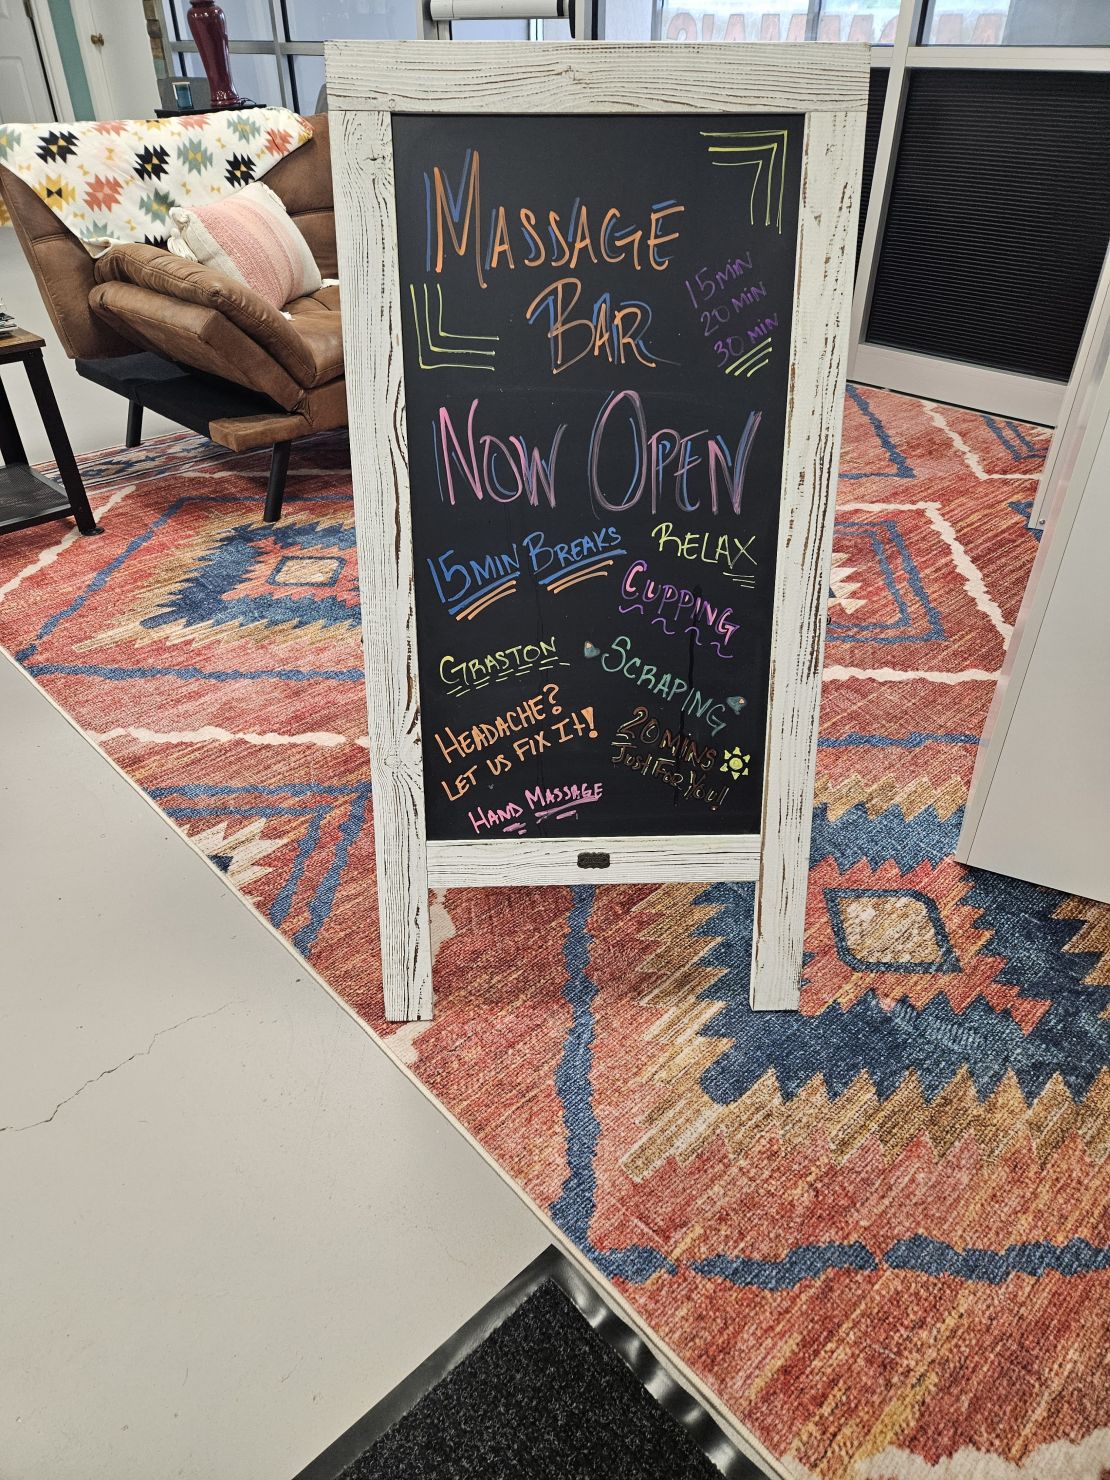 MASSAGE
BAR
15 MIN
20 MIN
30 MIN
NOW OPEN
15 MIN BREAKS
RELAX
CUPPING
GRASTON
SCRAPING
HEADACHE?
LET US FIX IT!
20 MINS
Just For You!
HAND MASSAGE